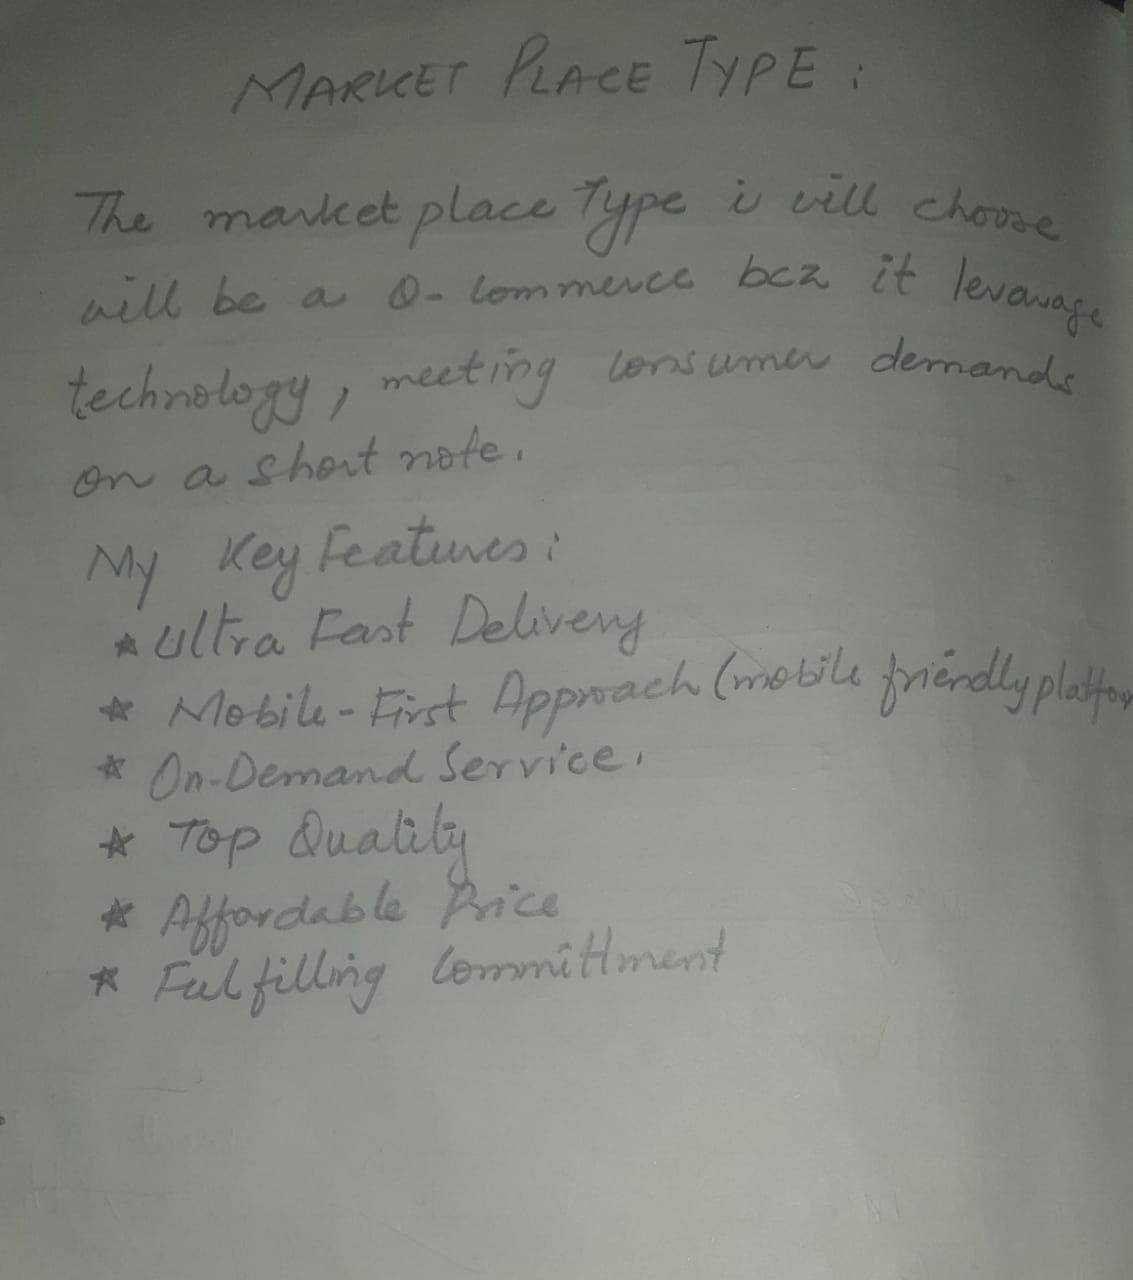 MARKET PLACE TYPE :
The market place Type i will choose
will be a Q-Commerce bcz it levarage
technology, meeting consumer demands
on a short note.
My Key Features :
★ Ultra Fast Delivery
★ Mobile-First Approach (mobile friendly platfor
★ On-Demand Service.
★ Top Quality
★ Affordable Price
★ Fulfilling Committment